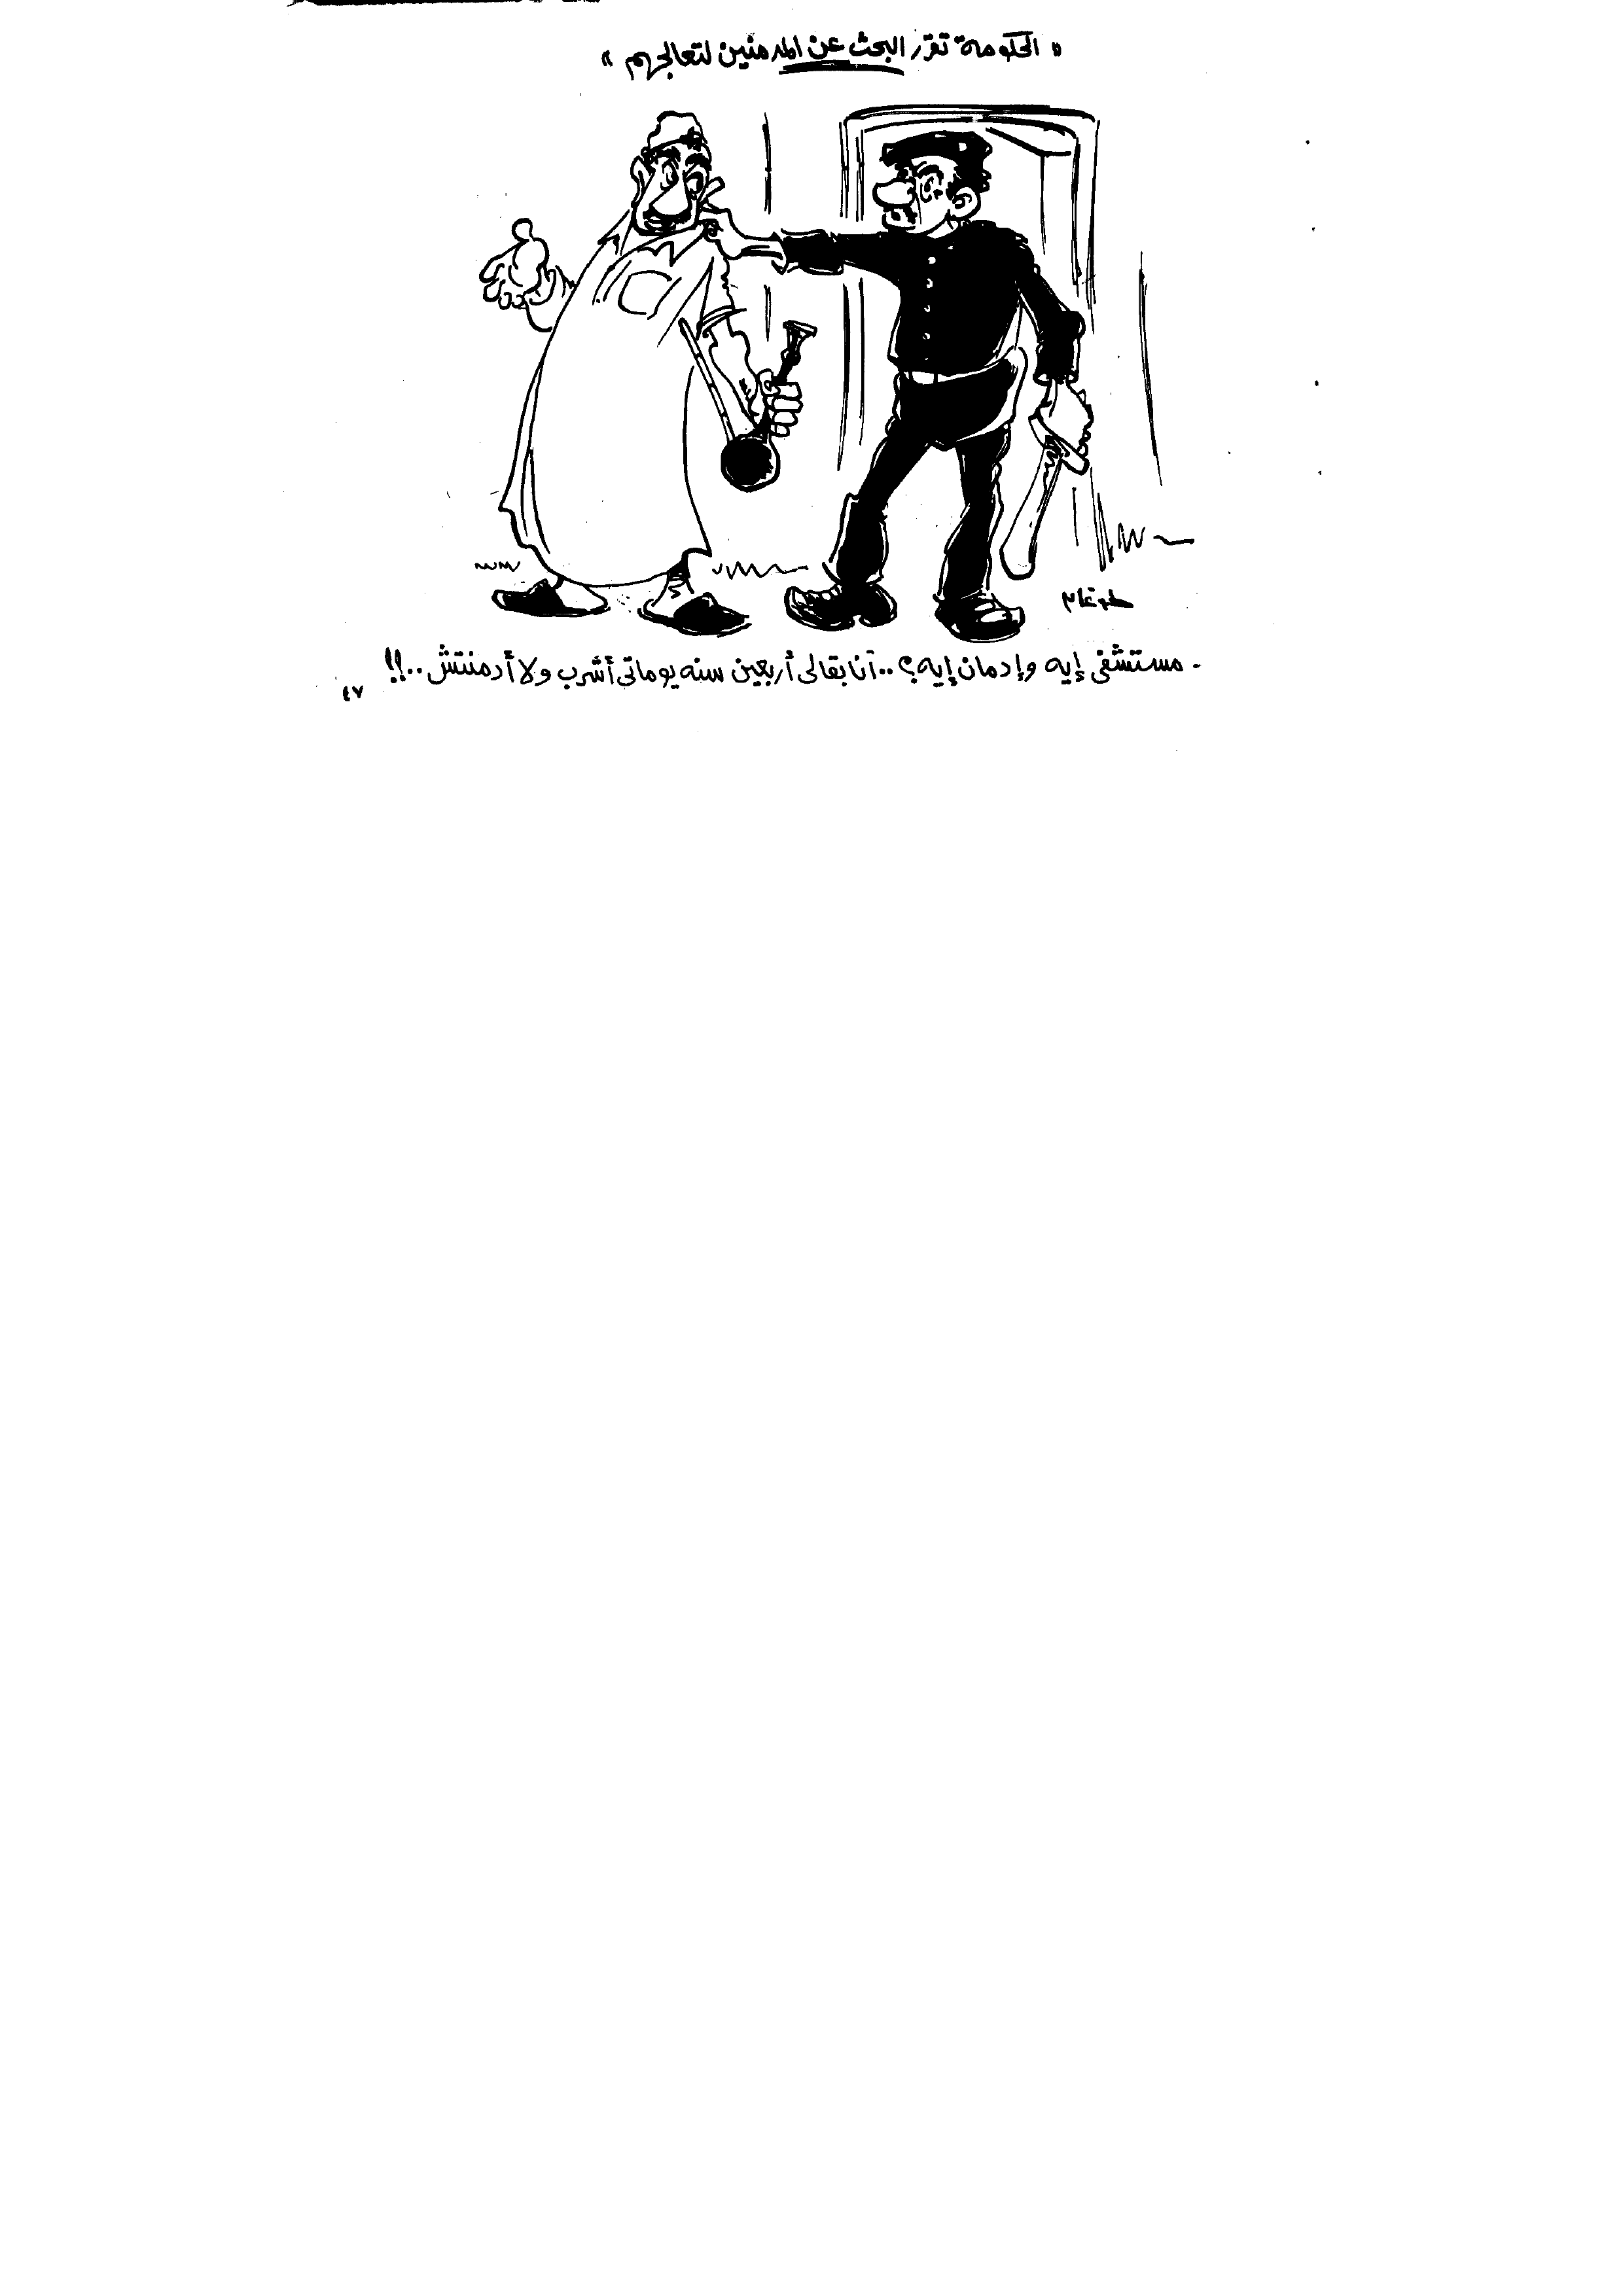 « الحكومة تقرر البحث عن المدمنين لتعالجهم »
طوغان
- مستشفى إيه وإدمان إيه؟ .. أنا بقالى أربعين سنه يوماتى أشرب ولا أدمنتش ..!!
٤٧